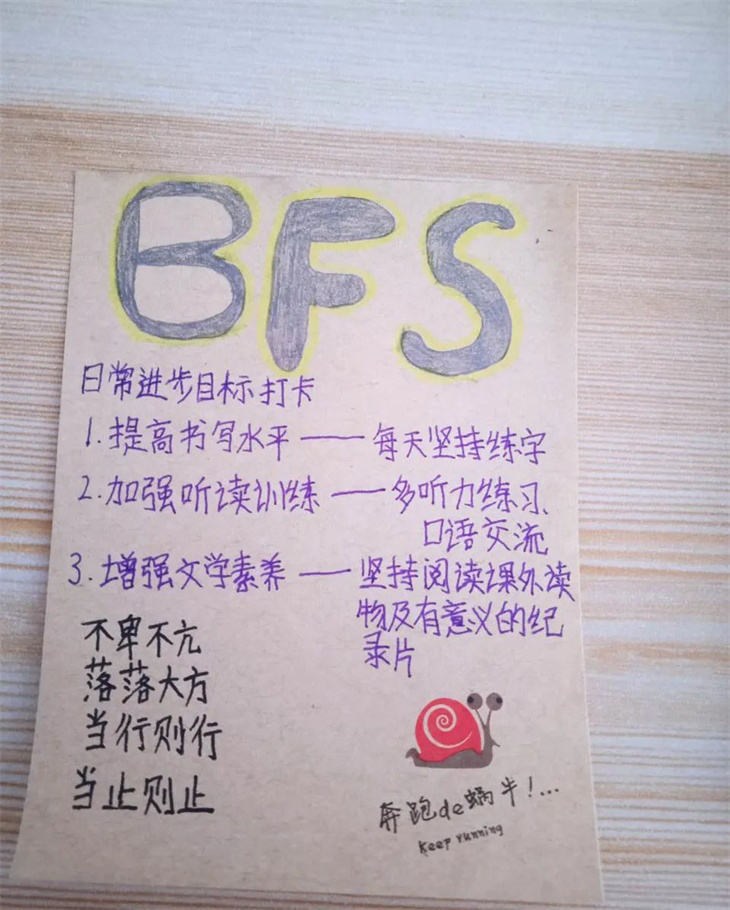 BFS
日常进步目标打卡
1.提高书写水平——每天坚持练字
2.加强听读训练——多听力练习、
口语交流
3.增强文学素养——坚持阅读课外读
物及有意义的纪
录片
不卑不亢
落落大方
当行则行
当止则止
奔跑de蜗牛!...
Keep running